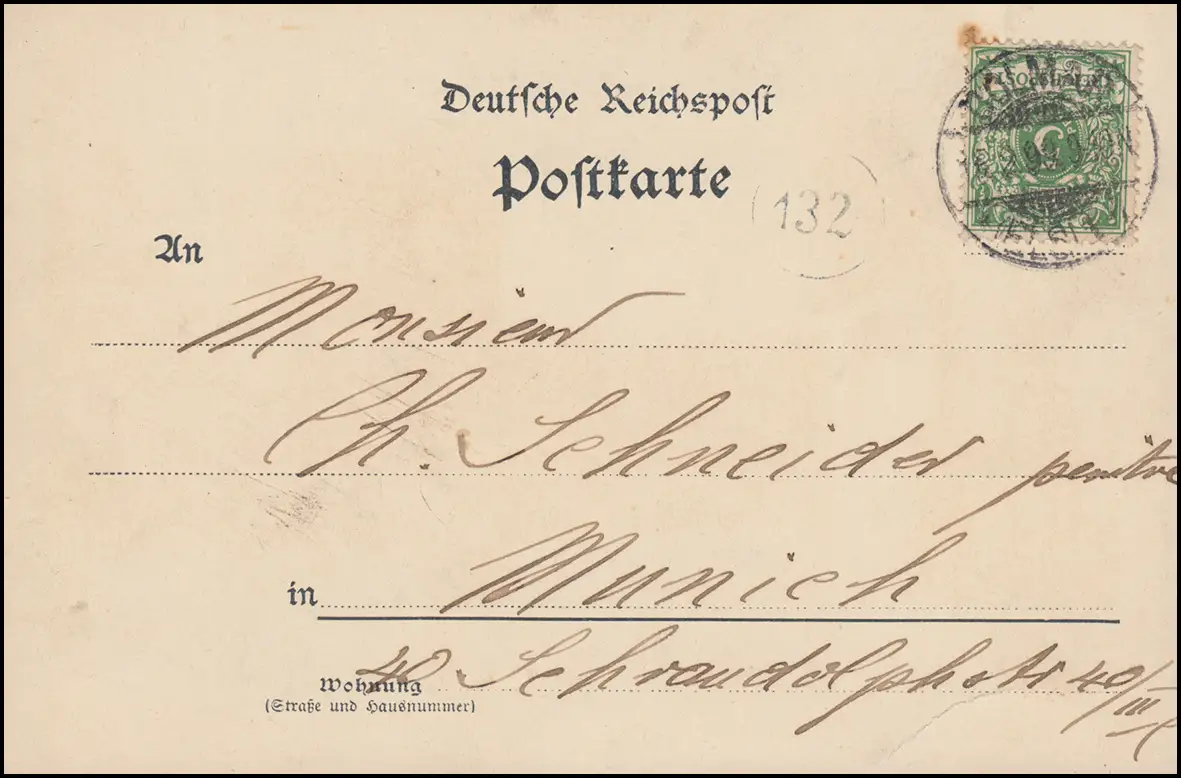 Deutsche Reichspost
Postkarte
132
An
Monsieur
Ch. Schneider peintre
in Munich
40. Schraudolphstr 40/III
Wohnung
(Straße und Hausnummer)